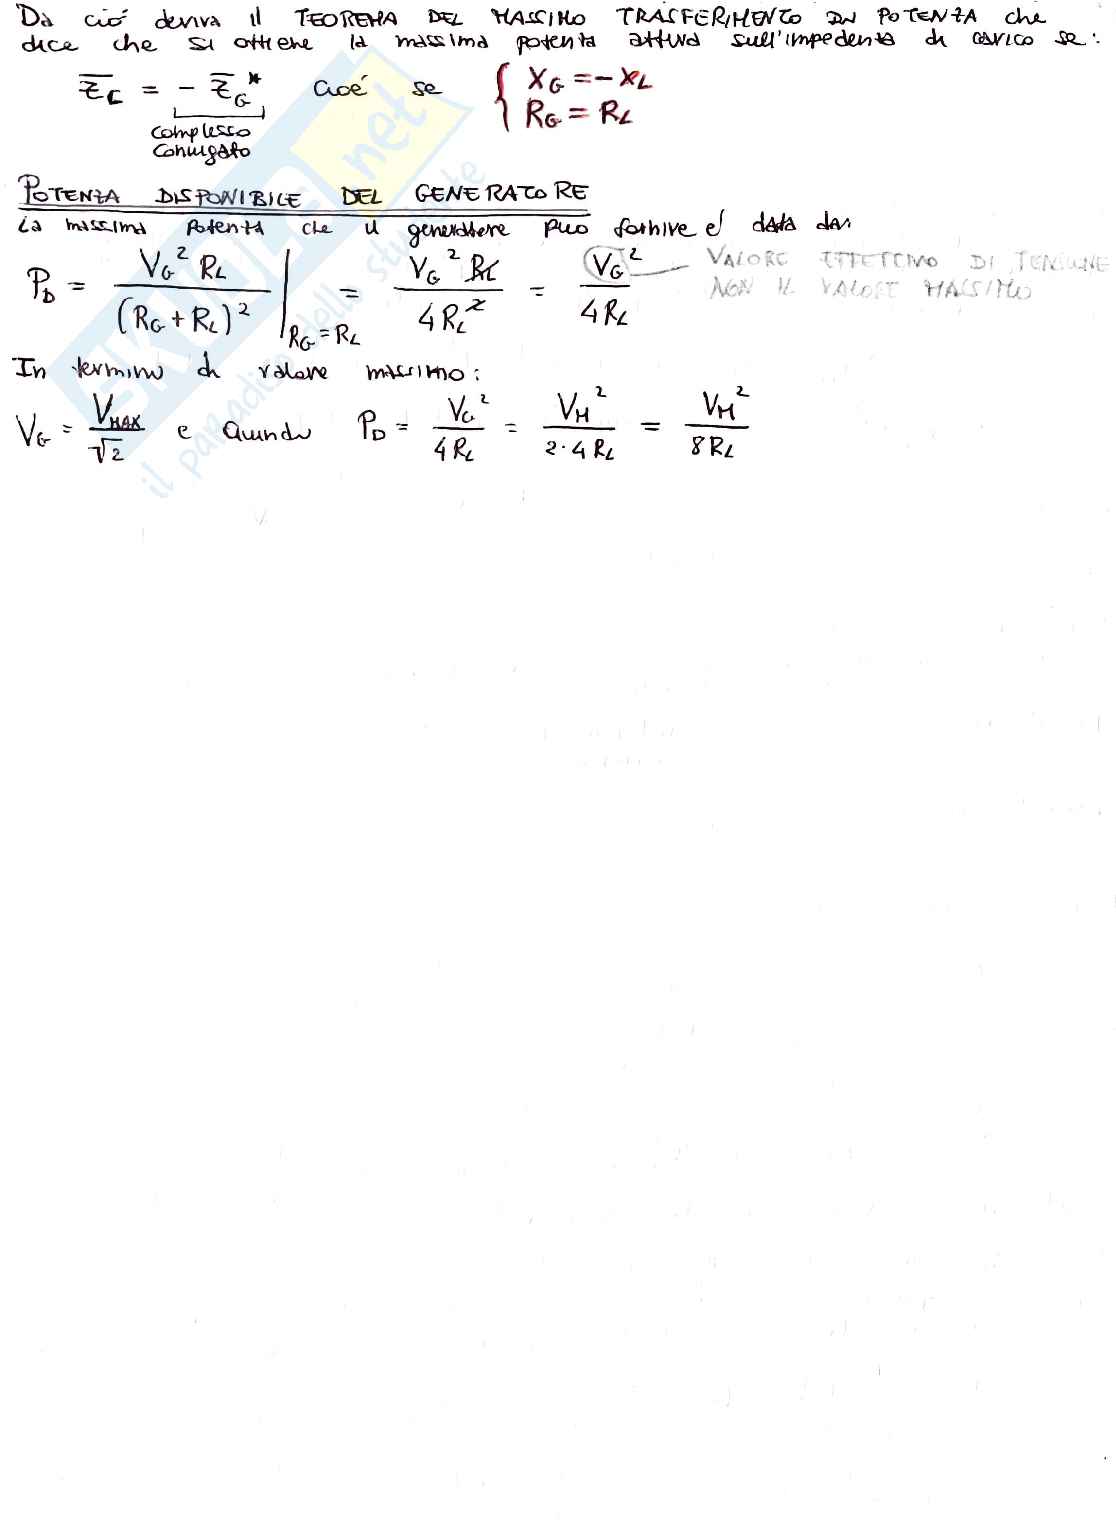 Da ció deriva il TEOREMA DEL MASSIMO TRASFERIMENTO DI POTENZA che
dice che si ottiene la massima potenza attiva sull'impedenza di carico se:
Z̅_L = - Z̅_G* cioé se { X_G = - X_L
R_G = R_L
complesso
coniugato
POTENZA DISPONIBILE DEL GENERATORE
La massima potenza che il generatore puo fornire e' data da:
P_D = V_G² R_L / (R_G + R_L)² |_{R_G = R_L} = V_G² R_L / 4 R_L² = V_G² / 4 R_L
VALORE EFFETTIVO DI TENSIONE
NON IL VALORE MASSIMO
In termini di valore massimo:
V_G = V_MAX / √2 e quindi P_D = V_G² / 4 R_L = V_M² / 2·4 R_L = V_M² / 8 R_L
SKUOLA.net
il paradiso dello studente